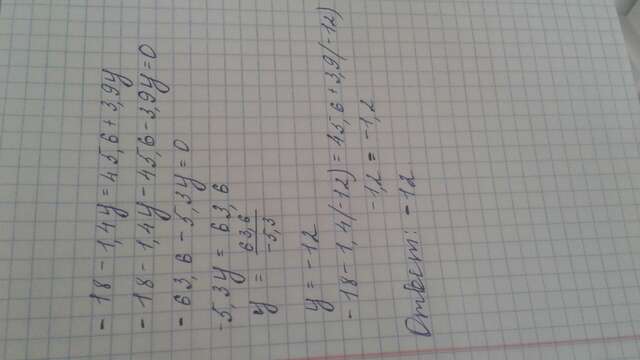 -18-1,4y=45,6+3,9y
-18-1,4y-45,6-3,9y=0
-63,6-5,3y=0
-5,3y=63,6
y=63,6/-5,3
y=-12
-18-1,4(-12)=45,6+3,9(-12)
-1,2=-1,2
Ответ: -12